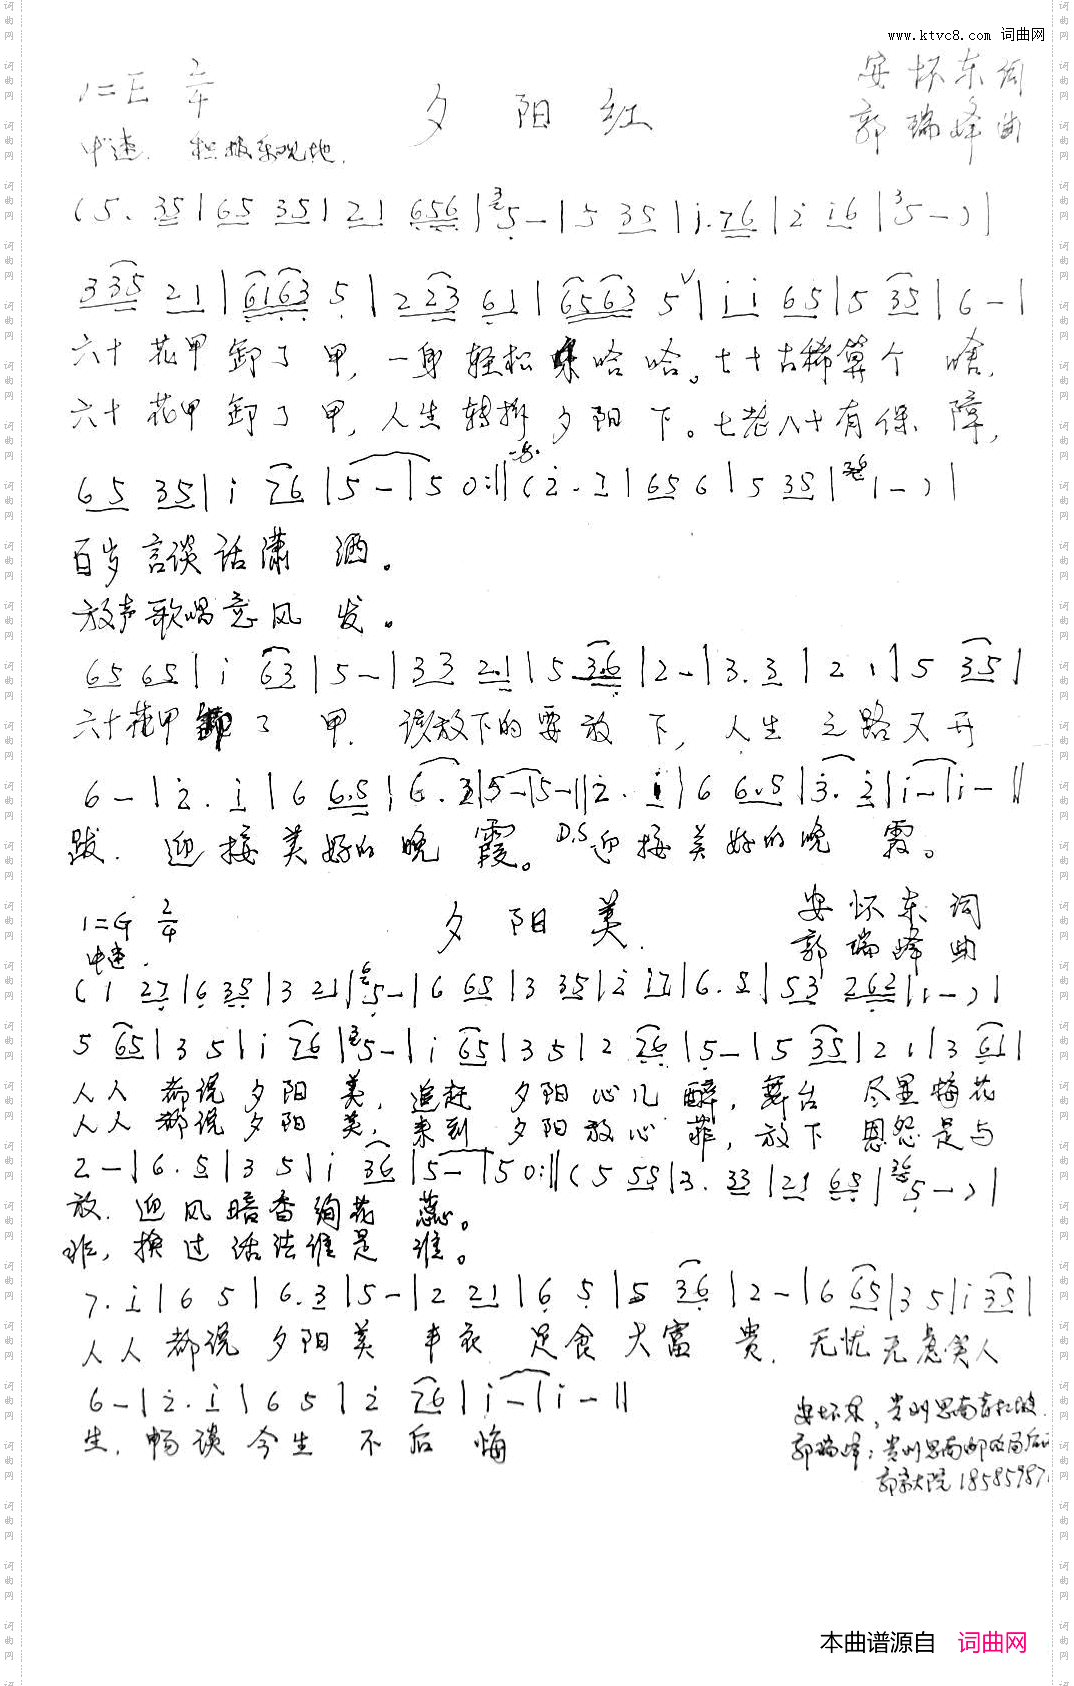 www.ktvc8.com 词曲网
1=E 2/4 夕阳红 安怀东词
中速. 积极乐观地. 郭瑞峰曲
(5. 35|65 35|21 656|5-|5 35|i.76|2 i6|5-)|
335 21|6163 5|223 61|6563 5|ii 65|5 35|6-|
六十花甲卸了甲,一身轻松 哈哈。七十古稀算个啥,
六十花甲卸了甲,人生转折夕阳下。七老八十有保障,
65 35|i 76|5-|50:||(2. 1|656|5 35|1-)|
百岁言谈话潇洒。
放声歌唱意风发。
65 65|i 63|5-|33 2.1|5 3.6|2-|3.3|21|5 35|
六十花甲卸了甲.该放下的要放下,人生之路又开
6-|2.i|6 6.5|6.3|5-|5-||2.i|6 6.5|3.2|i-|i-||
拔.迎接美好的晚霞。D.S迎接美好的晚霞。
1=G 2/4 夕阳美. 安怀东词
中速. 郭瑞峰曲
(1 27|6 35|3 21|5-|6 65|3 35|2 17|6.5|53 262|1-)|
5 65|3 5|i 76|5-|i 65|3 5|2 76|5-|5 35|21|3 61|
人人都说夕阳美,追赶夕阳心儿醉,舞台尽显梅花
人人都说夕阳美,来到夕阳放心菲,放下恩怨是与
2-|6.5|3 5|i 36|5-|50:||(5 55|3. 33|21 65|5-)|
放.迎风暗香绚花蕊。
非,换过话法谁是谁。
7.i|6 5|6.3|5-|2 21|6 5|5 36|2-|6 65|35|i 35|
人人都说夕阳美丰衣足食大富贵.无忧无虑笑人
6-|2.i|6 5|2 76|i-|i-||
生.畅谈今生不后悔
安怀东,贵州思南
郭瑞峰:贵州思南邮政局后
大院 1858598
本曲谱源自 词曲网